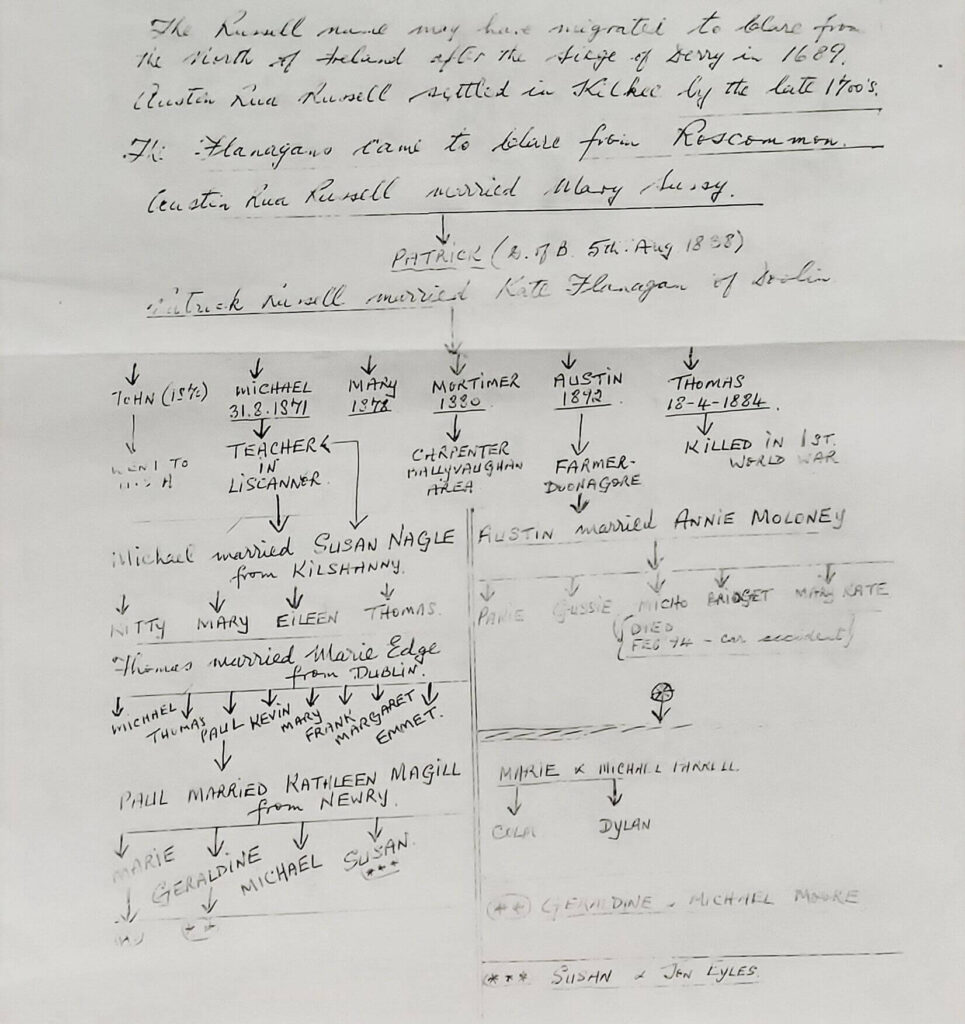 The Russell name may have migrated to Clare from
the North of Ireland after the Siege of Derry in 1689.
Austin Rua Russell settled in Kilkee by the late 1700's.
The Flanagans came to Clare from Roscommon.
Austin Rua Russell married Mary
PATRICK (D. of B. 5th. Aug 1838)
Patrick Russell married Kate Flanagan of Doolin
JOHN MICHAEL MARY MORTIMER AUSTIN THOMAS
31.8.1871 1878 1880 18-4-1884
WENT TO TEACHER CARPENTER FARMER- KILLED IN 1ST.
IN BALLYVAUGHAN DOONAGORE WORLD WAR
LISCANNER. AREA
Michael married SUSAN NAGLE
from KILSHANNY.
KITTY MARY EILEEN THOMAS.
Thomas married Marie Edge
from DUBLIN.
MICHAEL THOMAS PAUL KEVIN MARY FRANK MARGARET EMMET.
PAUL MARRIED KATHLEEN MAGILL
from NEWRY.
MARIE GERALDINE MICHAEL SUSAN.
***
**
AUSTIN married ANNIE MOLONEY
GUSSIE MICHO BRIDGET MARY KATE
(DIED
FEB 94 - car accident)
MARIE & MICHAEL
DYLAN
(**) GERALDINE & MICHAEL MOORE
*** SUSAN & JON EYLES.